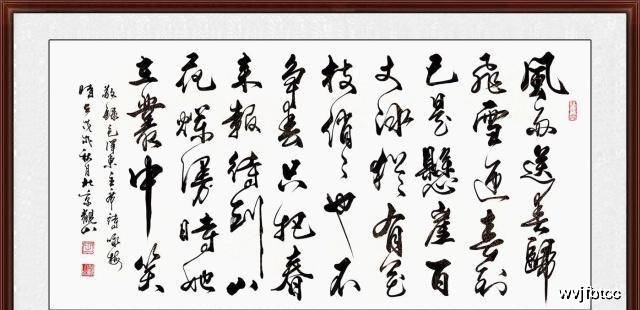 風雨送春歸
飛雪迎春到
已是懸崖百
丈冰猶有花
枝俏〻也不
争春只把春
来報待到山
花爛漫時她
在叢中笑
敬録毛澤東主席詩詠梅
秋月北京觀山
wvjfbtcc